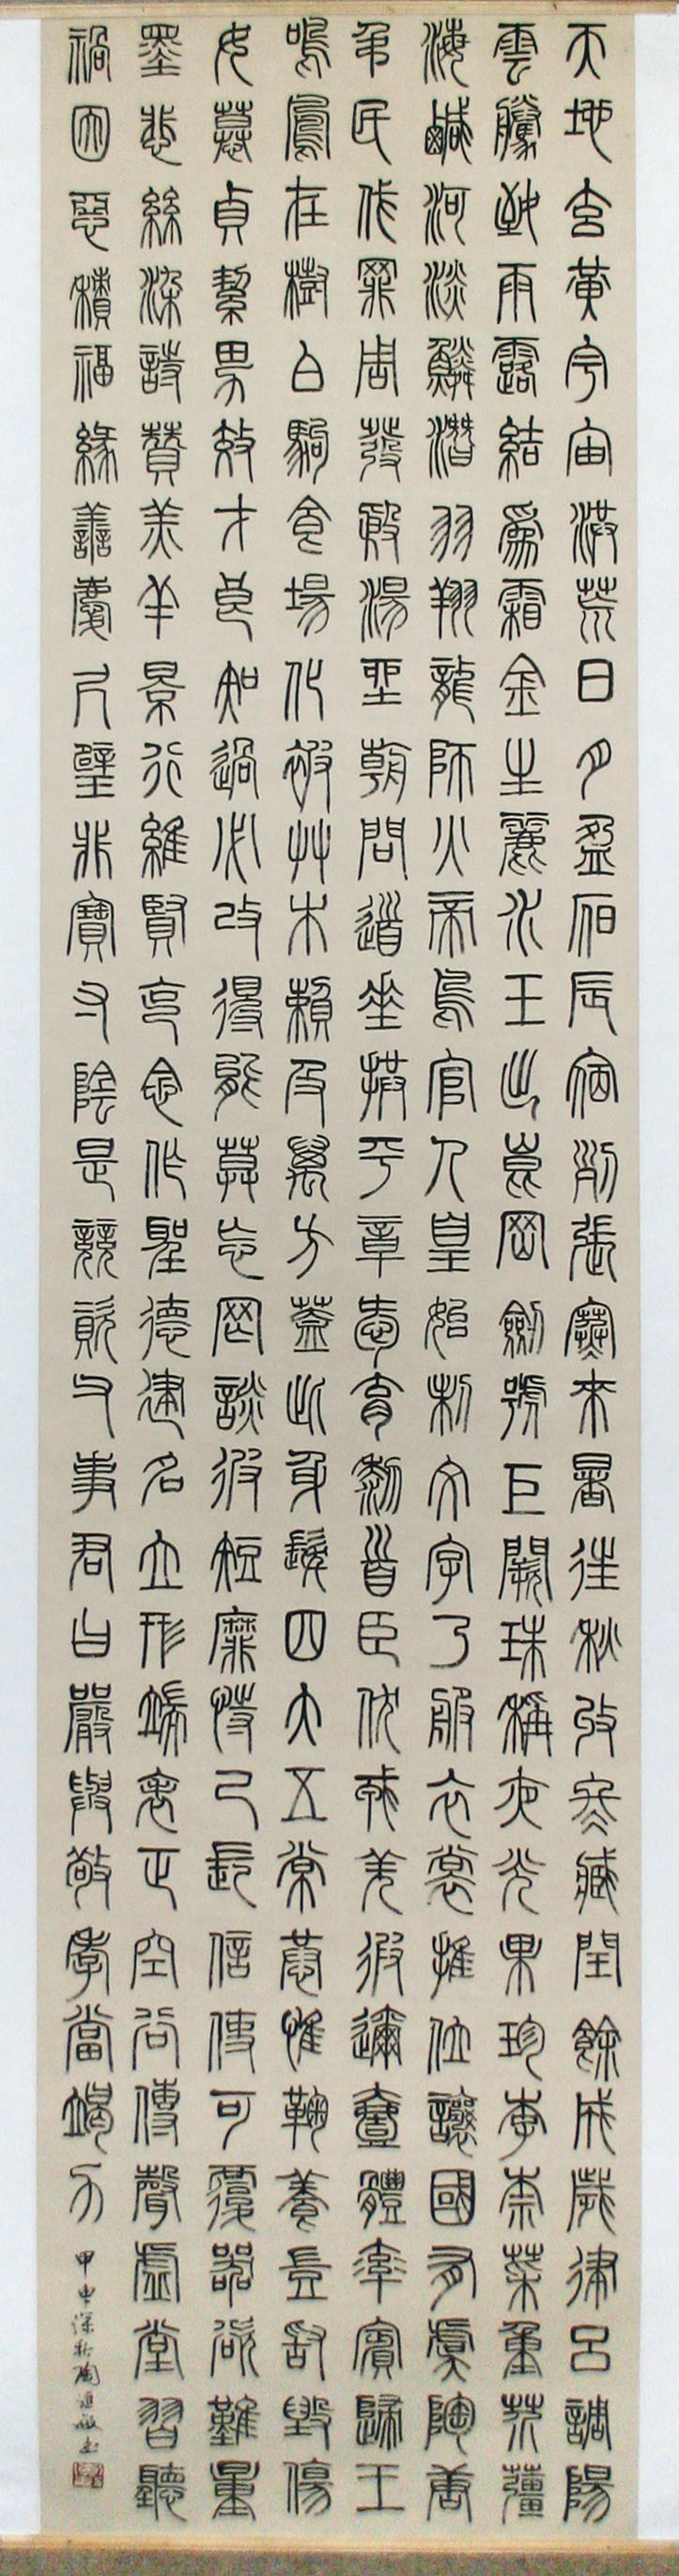 天地玄黃宇宙洪荒日月盈昃辰宿列張寒來暑往秋收冬藏閏餘成歲律呂調陽
雲騰致雨露結爲霜金生麗水玉出崑岡劍號巨闕珠稱夜光果珍李柰菜重芥薑
海鹹河淡鱗潛羽翔龍師火帝鳥官人皇始制文字乃服衣裳推位讓國有虞陶唐
弔民伐罪周發殷湯坐朝問道垂拱平章愛育黎首臣伏戎羌遐邇壹體率賓歸王
鳴鳳在樹白駒食場化被草木賴及萬方蓋此身髮四大五常恭惟鞠養豈敢毀傷
女慕貞絜男效才良知過必改得能莫忘罔談彼短靡恃己長信使可覆器欲難量
墨悲絲染詩贊羔羊景行維賢克念作聖德建名立形端表正空谷傳聲虛堂習聽
禍因惡積福緣善慶尺璧非寶寸陰是競資父事君曰嚴與敬孝當竭力
甲申深秋陶敏書